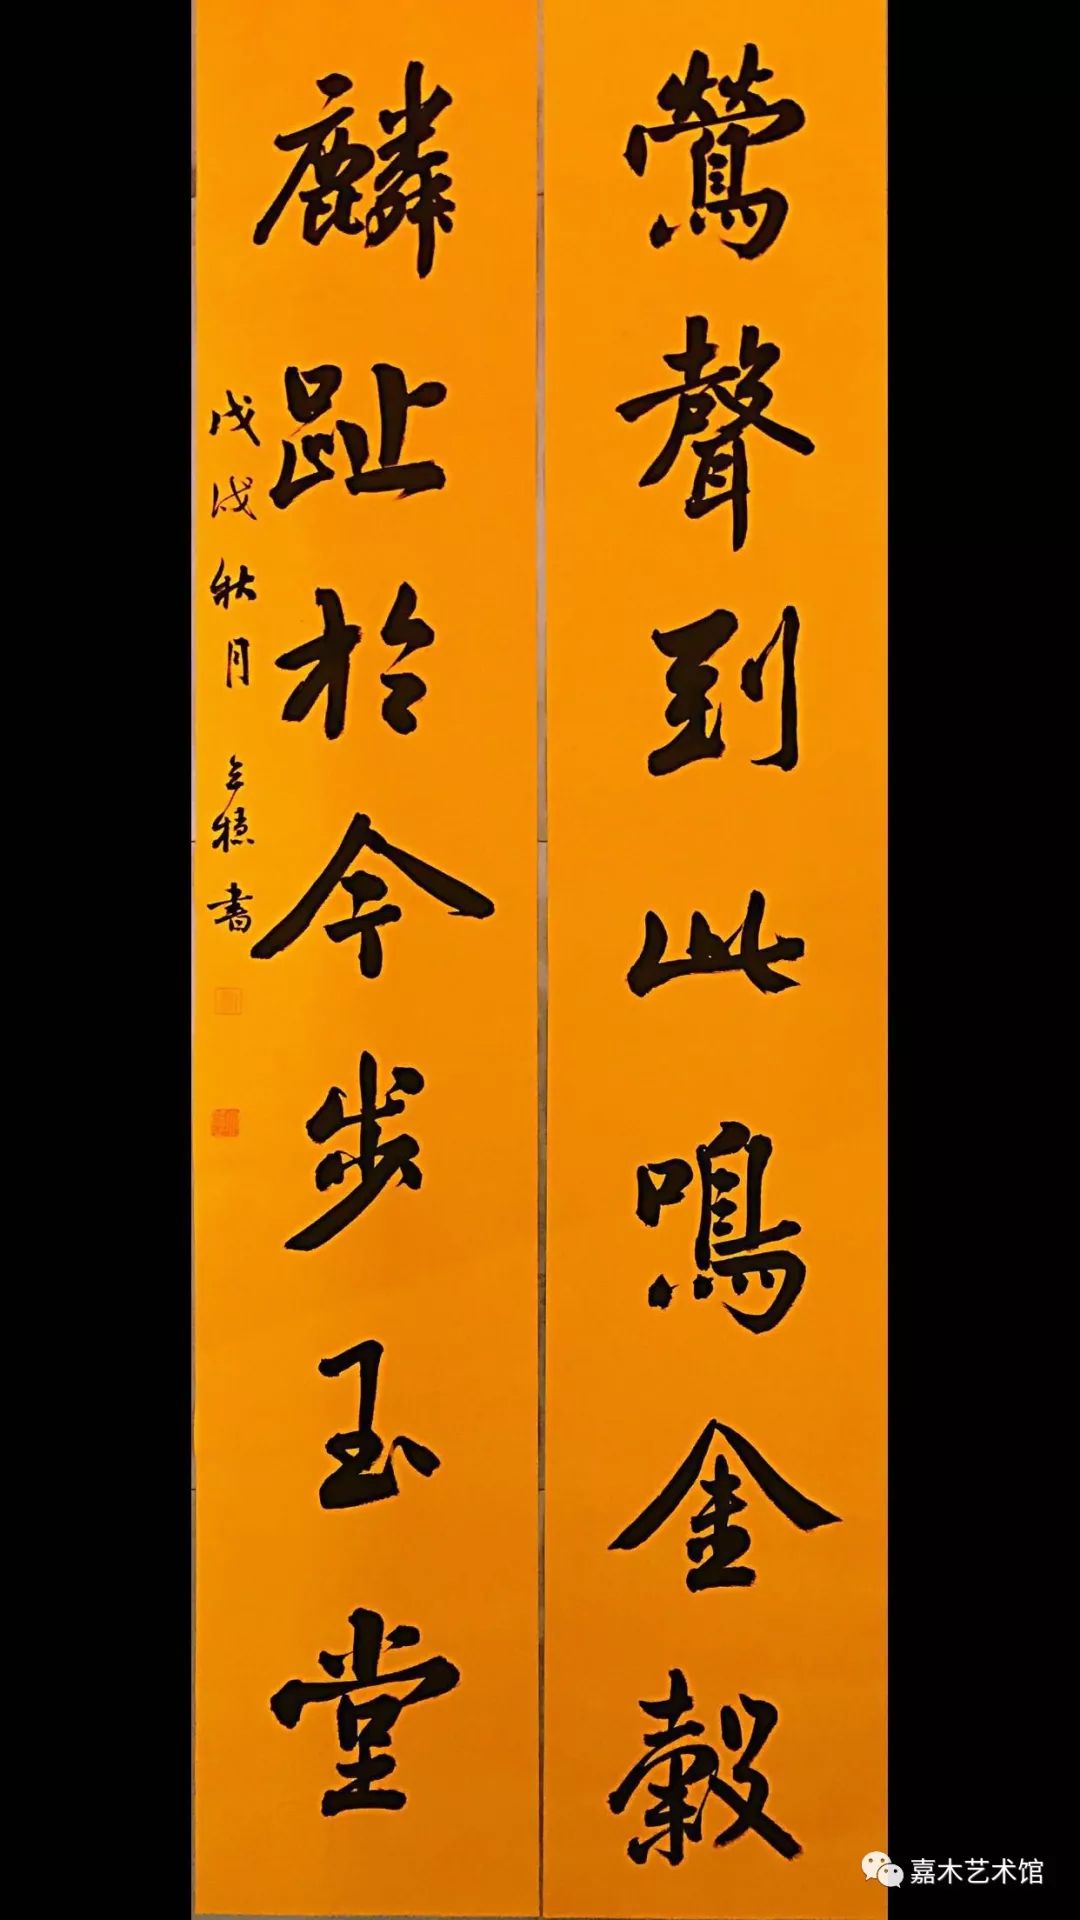 鶯聲到此鳴金榖
麟趾於今步玉堂
戊戌秋月
書
嘉木艺术馆